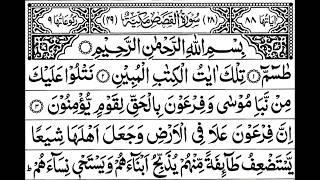 اٰیَاتُهَا ۸۸ (۲۸) سُوْرَةُ الْقَصَصِ مَكِّیَّةٌ (۴۹) رُكُوْعَاتُهَا ۹
بِسْمِ اللّٰهِ الرَّحْمٰنِ الرَّحِیْمِ
طٰسٓمّٓ ۝۱ تِلْكَ اٰیٰتُ الْكِتٰبِ الْمُبِیْنِ ۝۲ نَتْلُوْا عَلَیْكَ
مِنْ نَّبَاِ مُوْسٰی وَ فِرْعَوْنَ بِالْحَقِّ لِقَوْمٍ یُّؤْمِنُوْنَ ۝۳
اِنَّ فِرْعَوْنَ عَلَا فِی الْاَرْضِ وَ جَعَلَ اَهْلَهَا شِیَعًا
یَّسْتَضْعِفُ طَآىِٕفَةً مِّنْهُمْ یُذَبِّحُ اَبْنَآءَهُمْ وَ یَسْتَحْیٖ نِسَآءَهُمْ ؕ